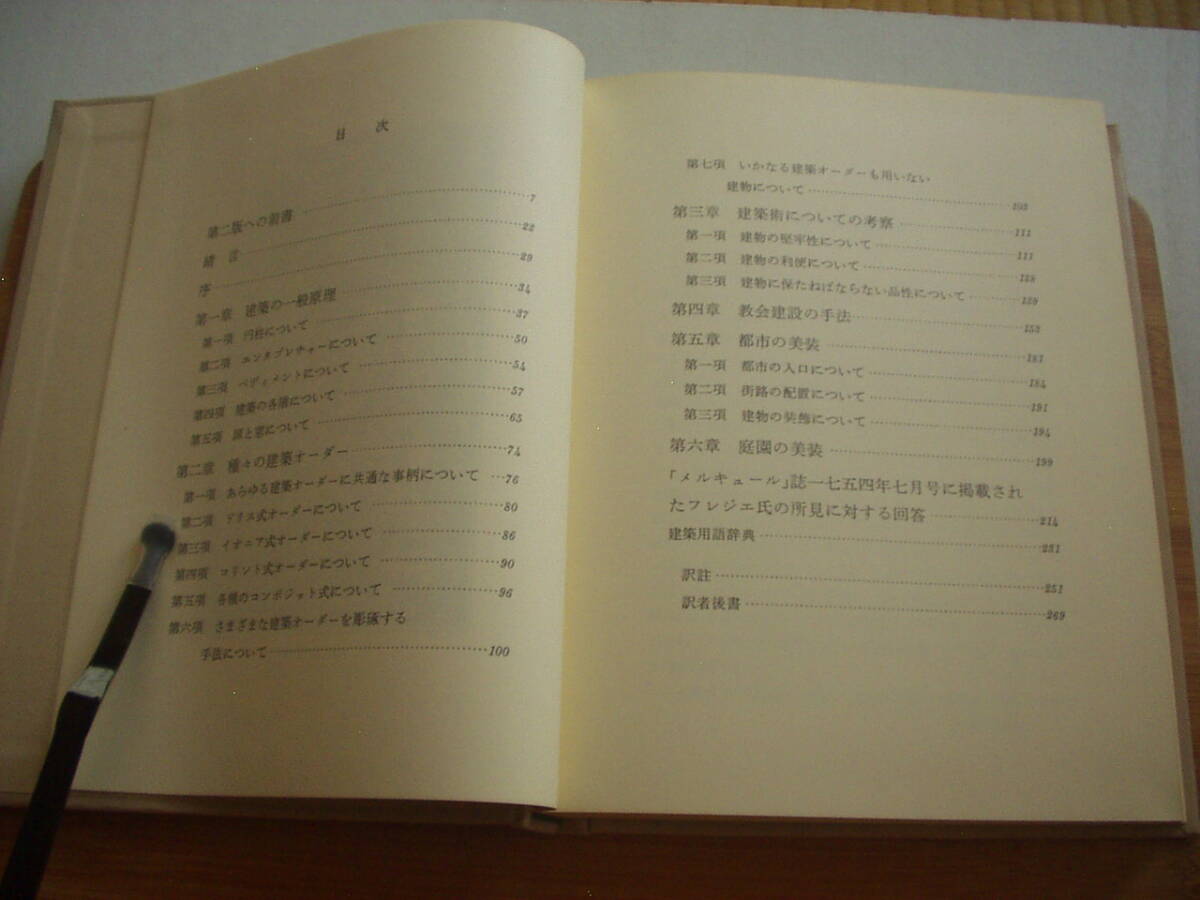 目 次
第二版への前書 7
緒言 22
序 29
第一章 建築の一般原理 34
第一項 円柱について 37
第二項 エンタブレチャーについて 50
第三項 ペディメントについて 54
第四項 建築の各階について 57
第五項 扉と窓について 65
第二章 種々の建築オーダー 74
第一項 あらゆる建築オーダーに共通な事柄について 76
第二項 ドリス式オーダーについて 80
第三項 イオニア式オーダーについて 86
第四項 コリント式オーダーについて 90
第五項 各種のコンポジット式について 96
第六項 さまざまな建築オーダーを彫琢する
手法について 100
第七項 いかなる建築オーダーも用いない
建物について 103
第三章 建築術についての考察 111
第一項 建物の堅牢性について 111
第二項 建物の利便について 128
第三項 建物に保たねばならない品性について 139
第四章 教会建設の手法 153
第五章 都市の美装 181
第一項 都市の入口について 184
第二項 街路の配置について 191
第三項 建物の装飾について 194
第六章 庭園の美装 199
「メルキュール」誌一七五四年七月号に掲載され
たフレジエ氏の所見に対する回答 214
建築用語辞典 231
訳註 251
訳者後書 269